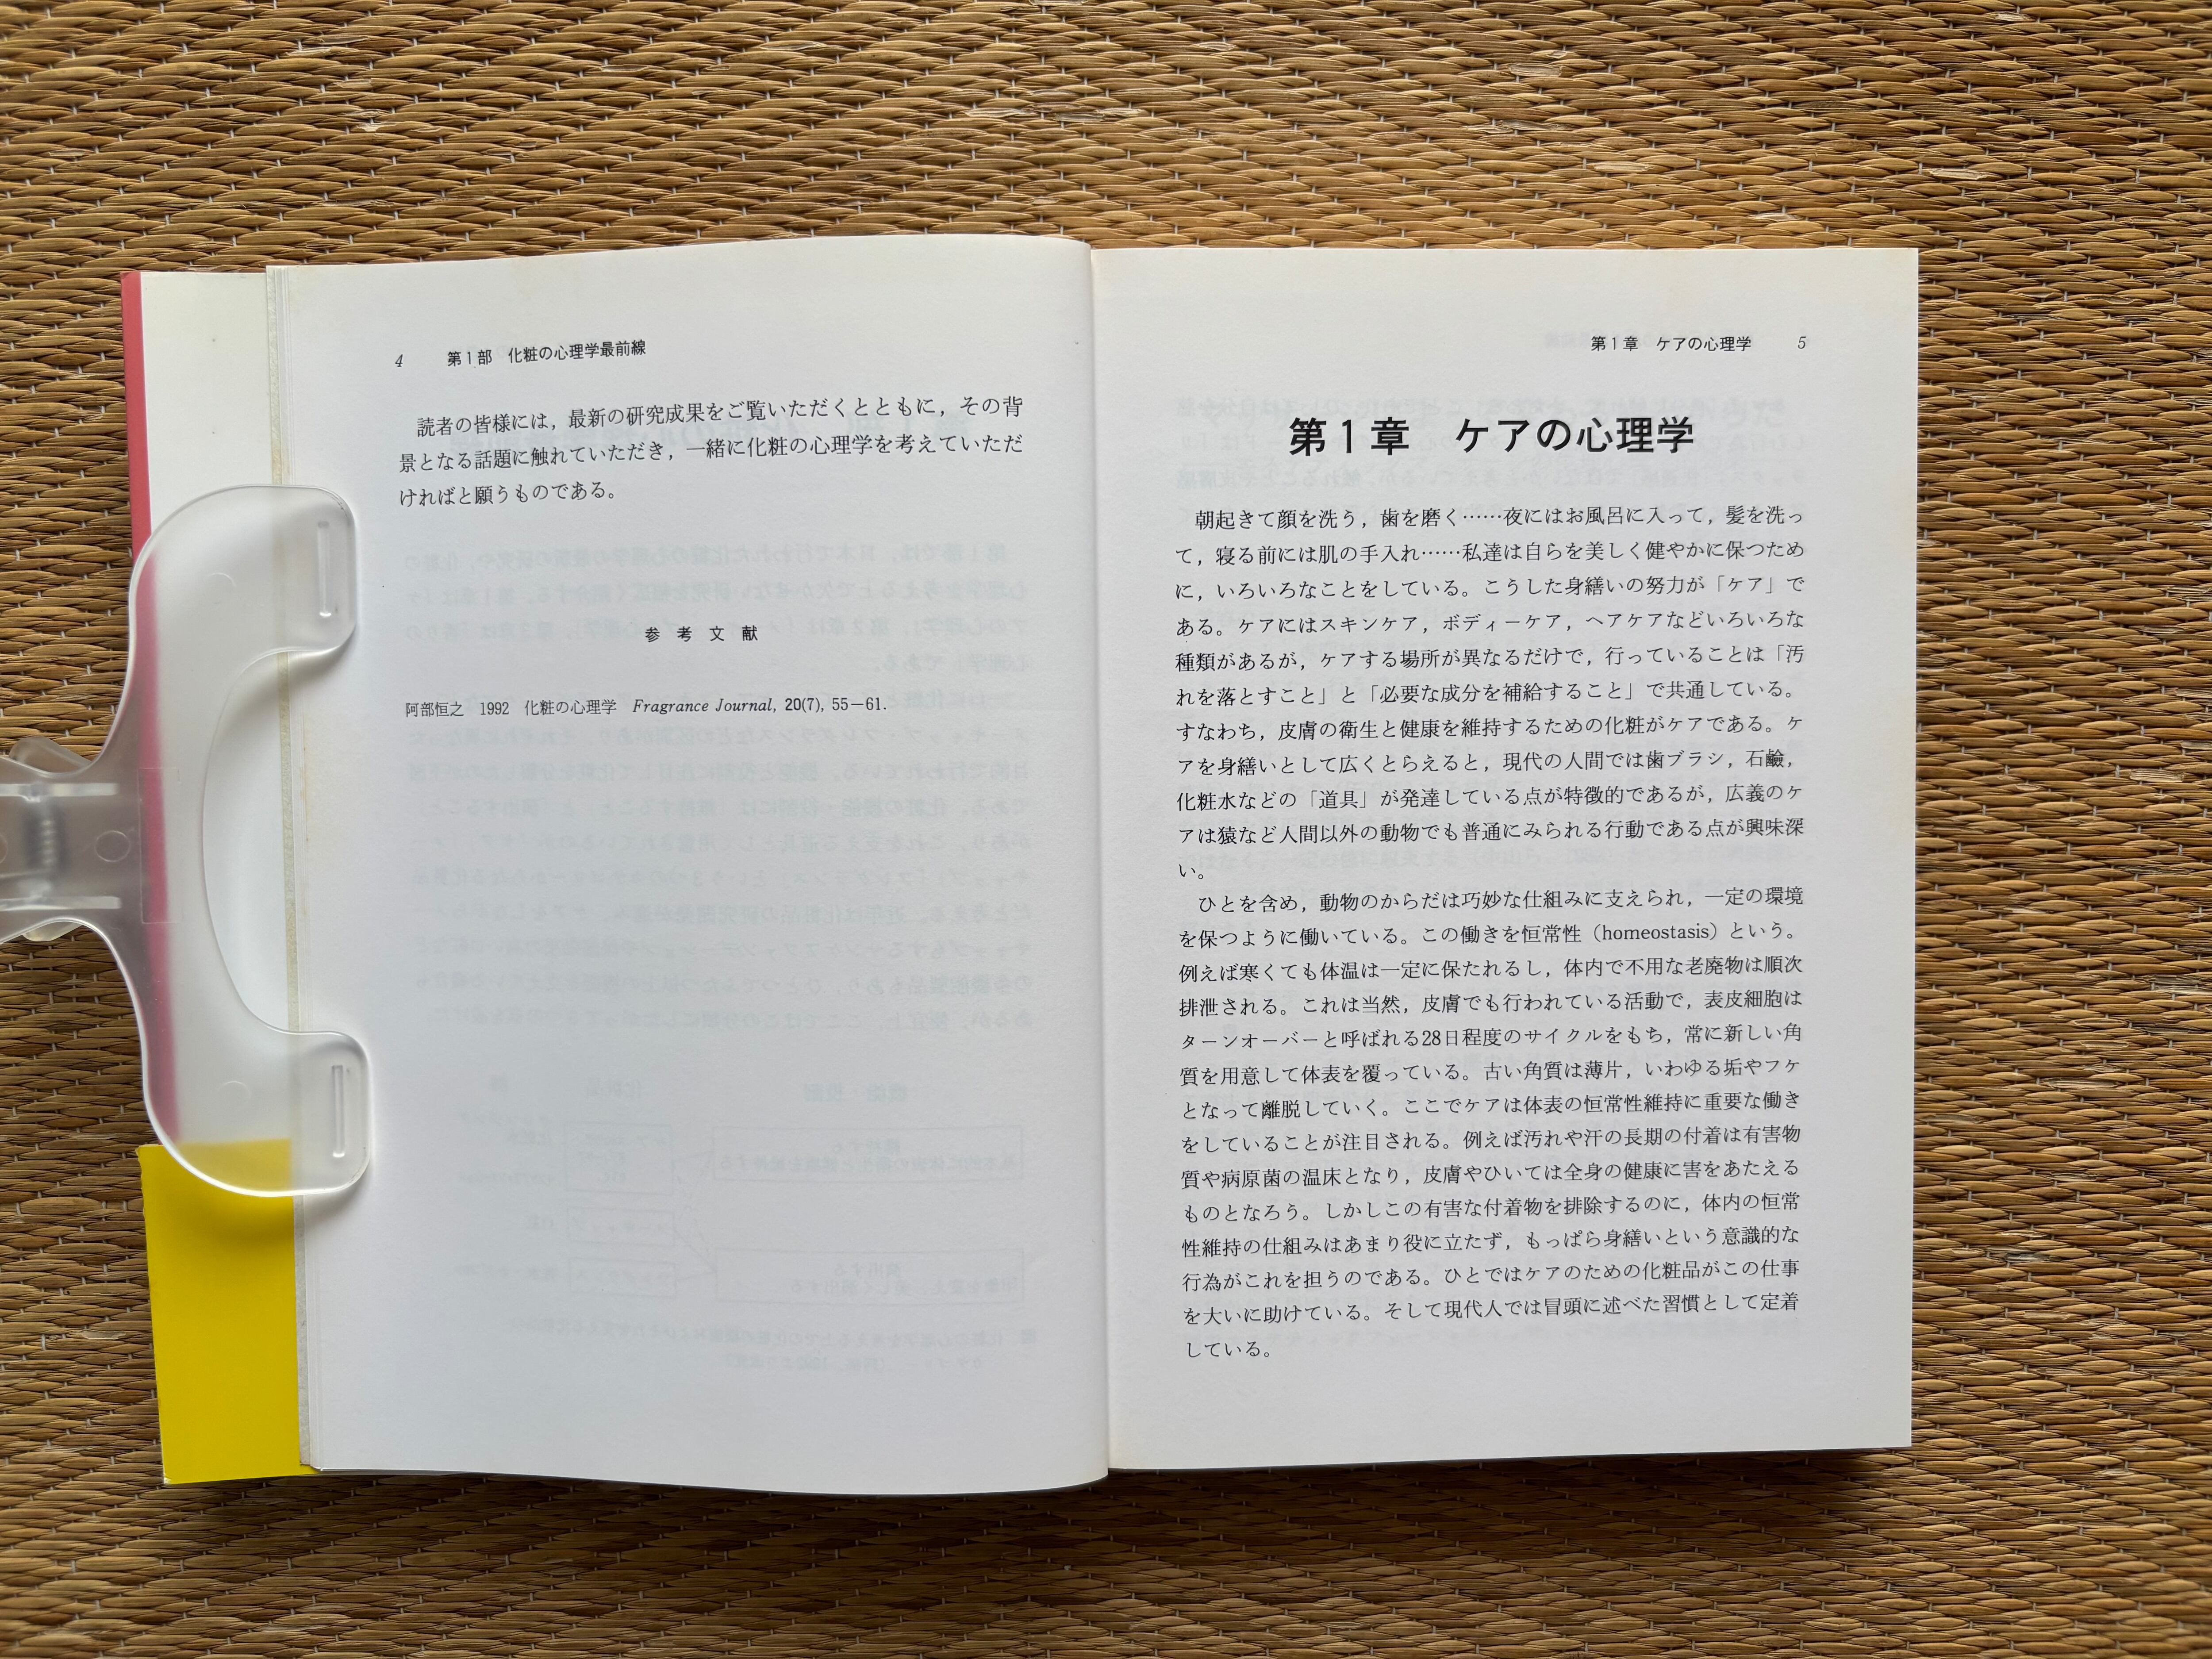 4 第1部 化粧の心理学最前線
読者の皆様には，最新の研究成果をご覧いただくとともに，その背
景となる話題に触れていただき，一緒に化粧の心理学を考えていただ
ければと願うものである。
参考文献
阿部恒之 1992 化粧の心理学 Fragrance Journal, 20(7), 55－61.
第1章 ケアの心理学 5
第1章 ケアの心理学
朝起きて顔を洗う，歯を磨く……夜にはお風呂に入って，髪を洗っ
て，寝る前には肌の手入れ……私達は自らを美しく健やかに保つため
に，いろいろなことをしている。こうした身繕いの努力が「ケア」で
ある。ケアにはスキンケア，ボディーケア，ヘアケアなどいろいろな
種類があるが，ケアする場所が異なるだけで，行っていることは「汚
れを落とすこと」と「必要な成分を補給すること」で共通している。
すなわち，皮膚の衛生と健康を維持するための化粧がケアである。ケ
アを身繕いとして広くとらえると，現代の人間では歯ブラシ，石鹼，
化粧水などの「道具」が発達している点が特徴的であるが，広義のケ
アは猿など人間以外の動物でも普通にみられる行動である点が興味深
い。
ひとを含め，動物のからだは巧妙な仕組みに支えられ，一定の環境
を保つように働いている。この働きを恒常性（homeostasis）という。
例えば寒くても体温は一定に保たれるし，体内で不用な老廃物は順次
排泄される。これは当然，皮膚でも行われている活動で，表皮細胞は
ターンオーバーと呼ばれる28日程度のサイクルをもち，常に新しい角
質を用意して体表を覆っている。古い角質は薄片，いわゆる垢やフケ
となって離脱していく。ここでケアは体表の恒常性維持に重要な働き
をしていることが注目される。例えば汚れや汗の長期の付着は有害物
質や病原菌の温床となり，皮膚やひいては全身の健康に害をあたえる
ものとなろう。しかしこの有害な付着物を排除するのに，体内の恒常
性維持の仕組みはあまり役に立たず，もっぱら身繕いという意識的な
行為がこれを担うのである。ひとではケアのための化粧品がこの仕事
を大いに助けている。そして現代人では冒頭に述べた習慣として定着
している。